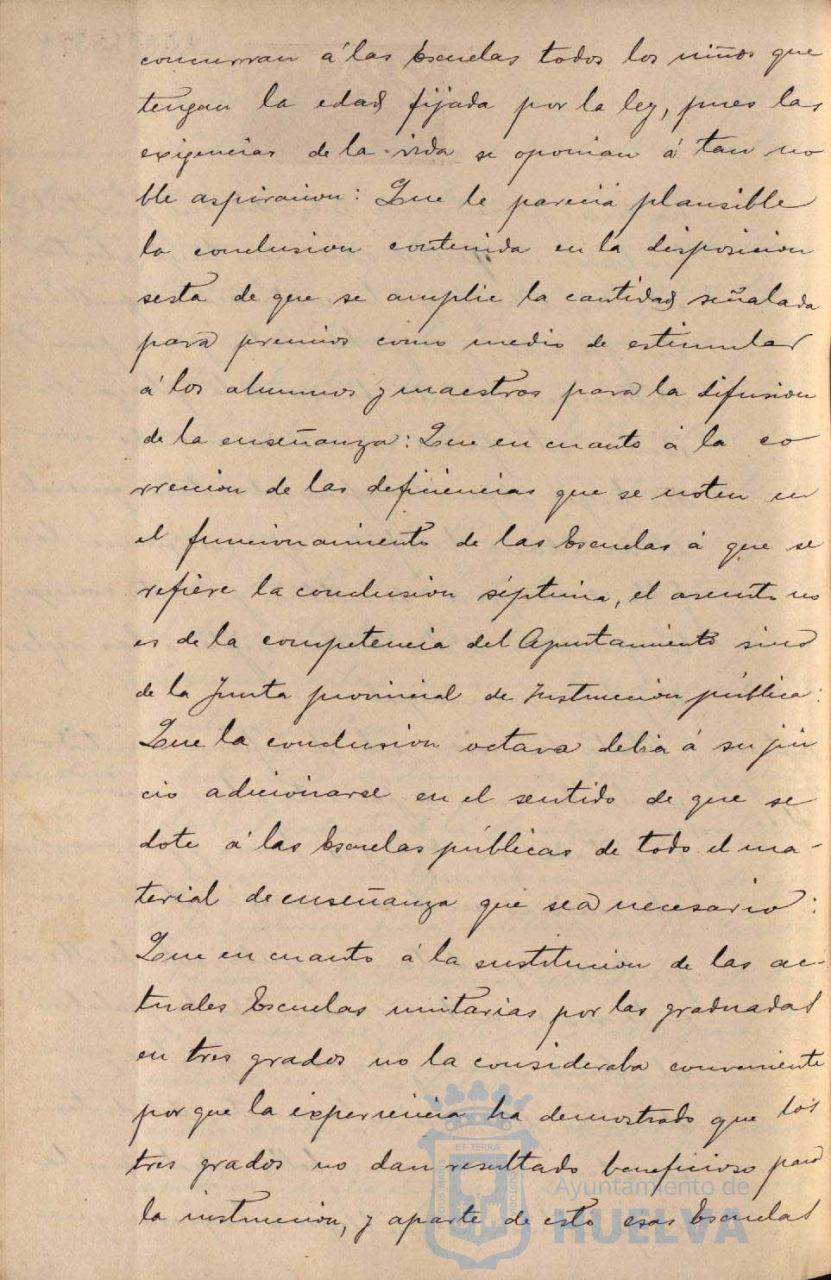 concurran á las Escuelas todos los niños que
tengan la edad fijada por la ley, pues las
exigencias de la vida se oponian á tan no
ble aspiracion: Que le parecia plausible
la conclusion contenida en la disposicion
sesta de que se amplie la cantidad señalada
para premios como medio de estimular
á los alumnos y maestros para la difusion
de la enseñanza: Que en cuanto á la co
rrencion de las deficiencias que se noten en
el funcionamiento de las Escuelas á que se
refiere la conclusion séptima, el asunto no
es de la competencia del Ayuntamiento sino
de la Junta provincial de Instruccion pública:
Que la conclusion octava debia á su jui
cio adicionarse en el sentido de que se
dote á las Escuelas públicas de todo el ma-
terial de enseñanza que sea necesario:
Que en cuanto á la sustitucion de las ac-
tuales Escuelas unitarias por las graduadas
en tres grados no la consideraba conveniente
por que la experiencia ha demostrado que los
tres grados no dan resultado beneficioso para
la instruccion, y aparte de esto esas Escuelas
ET TERRA
Ayuntamiento de
HUELVA